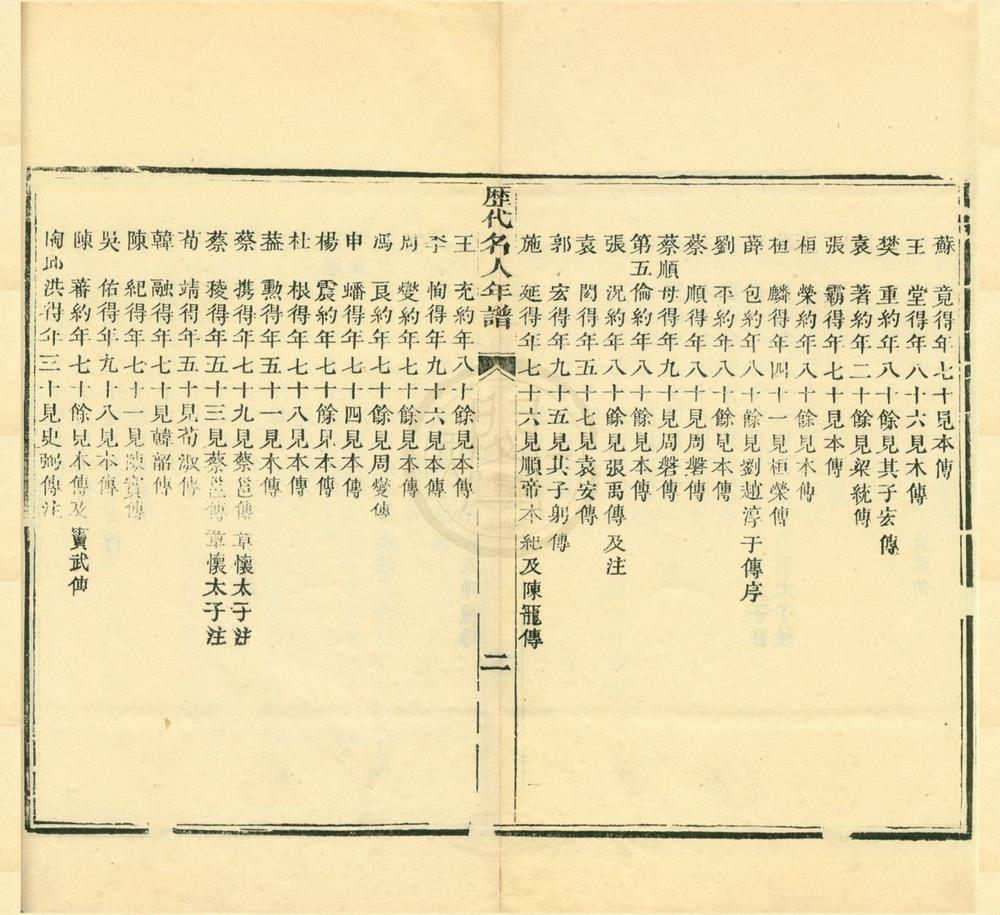 蘇竟得年七十見本傳
王堂得年八十六見本傳
樊重約年八十餘見其子宏傳
袁著約年二十餘見梁統傳
張霸得年七十見本傳
桓榮約年八十餘見本傳
桓麟得年四十一見桓榮傳
薛包約年八十餘見劉趙淳于傳序
劉平約年八十餘見本傳
蔡順得年八十見周磐傳
蔡順母得年九十見周磐傳
第五倫約年八十餘見本傳
張況約年八十餘見張禹傳及注
袁閎得年五十七見袁安傳
郭宏得年九十五見其子躬傳
施延得年七十六見順帝本紀及陳寵傳
歷代名人年譜
二
王充約年八十餘見本傳
李恂得年九十六見本傳
周燮約年七十餘見本傳
馮良約年七十餘見周燮傳
申蟠得年七十四見本傳
楊震約年七十餘見本傳
杜根得年七十八見本傳
葢勳得年五十一見本傳
蔡攜得年七十九見蔡邕傳章懷太子注
蔡稜得年五十三見蔡邕傳章懷太子注
荀靖得年五十見荀淑傳
韓融得年七十見韓韶傳
陳紀得年七十一見陳寔傳
吳佑得年九十八見本傳
陳蕃約年七十餘見本傳及竇武傳
陶丘洪得年三十見史弼傳注